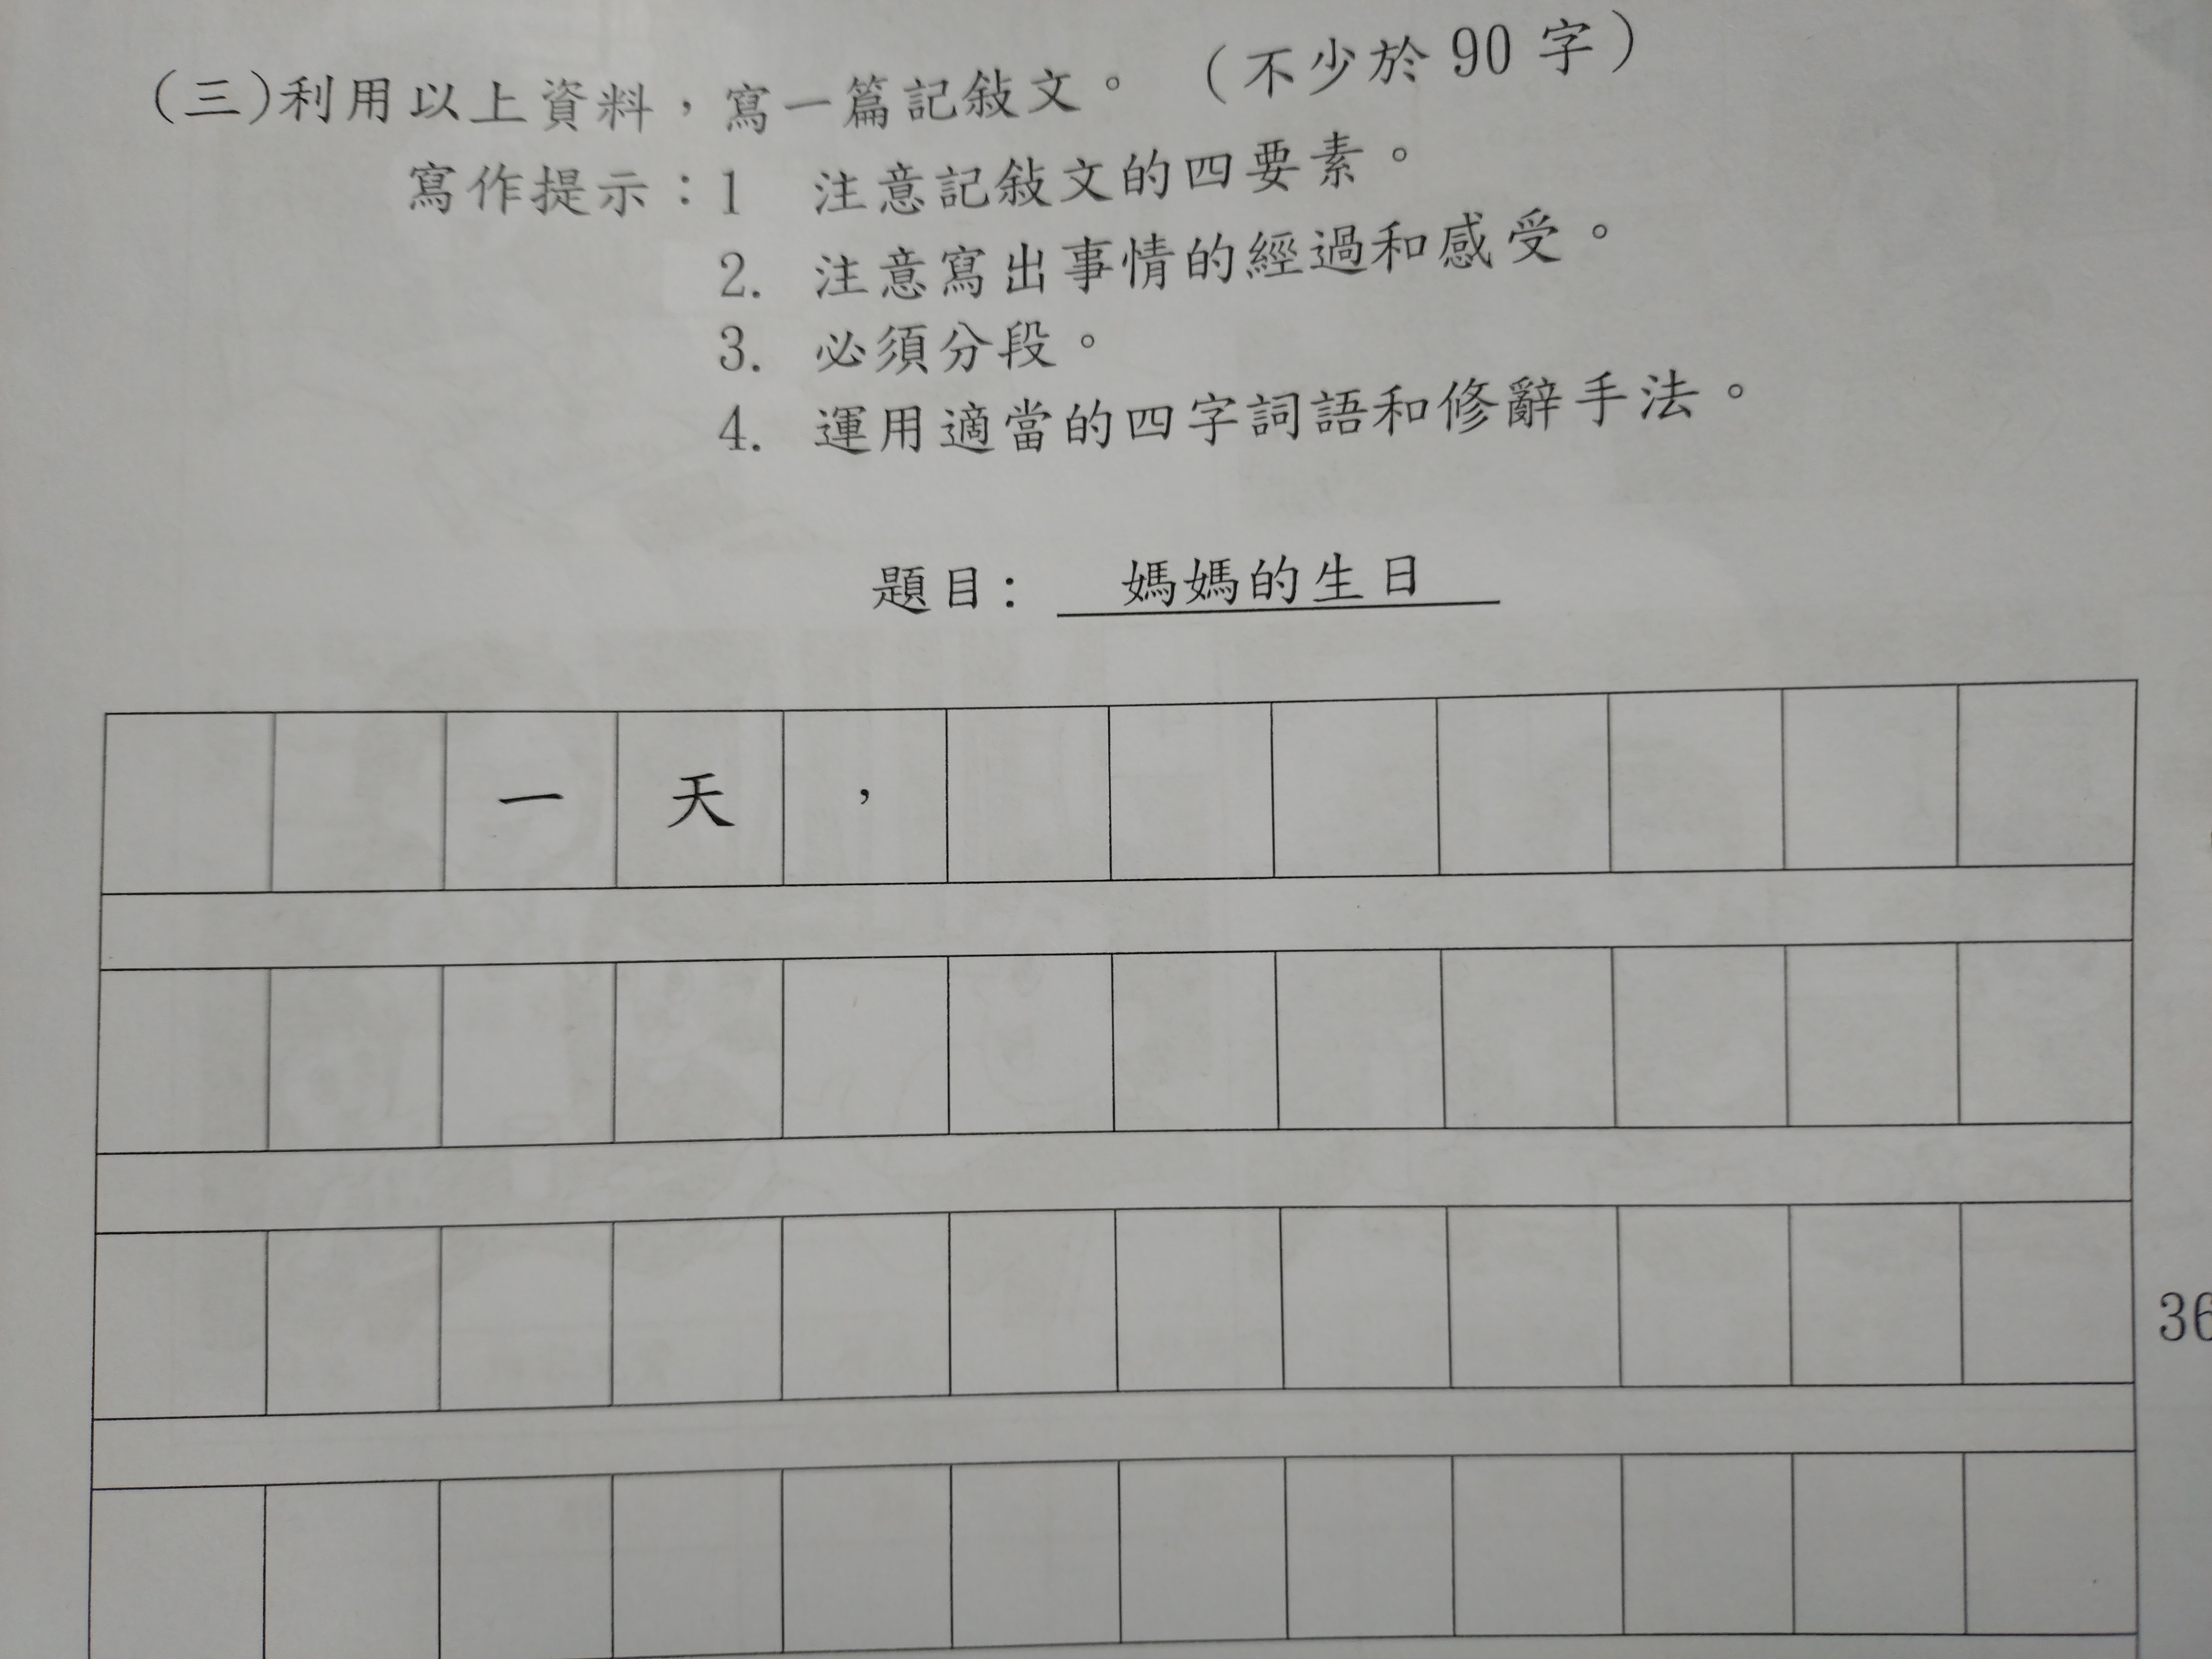 (三)利用以上資料，寫一篇記敍文。（不少於 90 字）
寫作提示：1 注意記敍文的四要素。
2. 注意寫出事情的經過和感受。
3. 必須分段。
4. 運用適當的四字詞語和修辭手法。
題目： 媽媽的生日
一天，
36